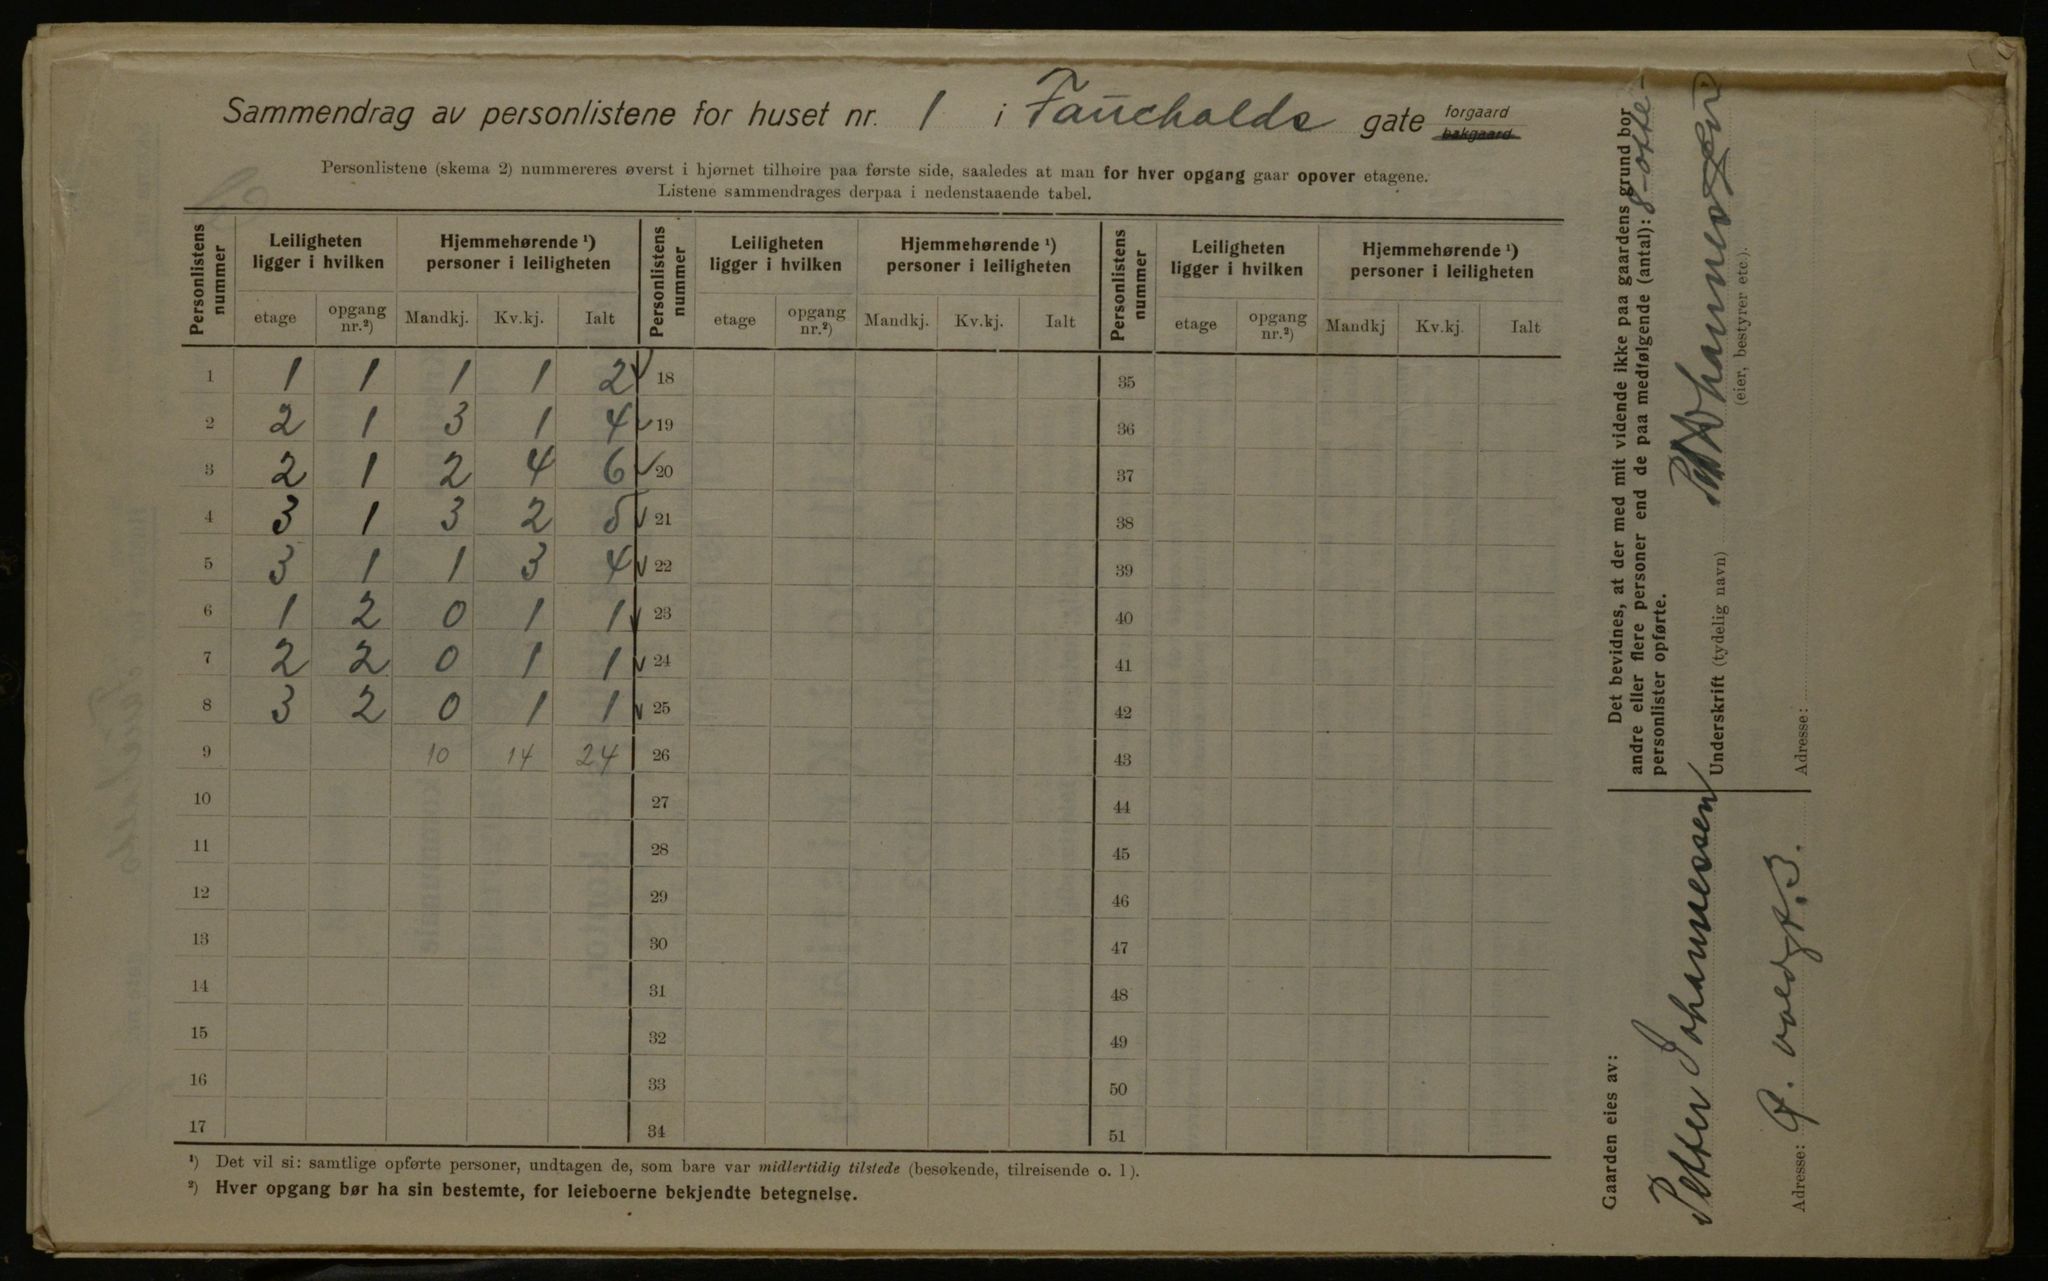 Sammendrag av personlistene for huset nr. 1 i Fauchalds gate forgaard bakgaard
Personlistene (skema 2) nummereres øverst i hjørnet tilhøire paa første side, saaledes at man for hver opgang gaar opover etagene.
Listene sammendrages derpaa i nedenstaaende tabel.
Personlistens nummer | Leiligheten ligger i hvilken | Hjemmehørende ¹) personer i leiligheten | Personlistens nummer | Leiligheten ligger i hvilken | Hjemmehørende ¹) personer i leiligheten | Personlistens nummer | Leiligheten ligger i hvilken | Hjemmehørende ¹) personer i leiligheten
etage | opgang nr.²) | Mandkj. | Kv.kj. | Ialt | etage | opgang nr.²) | Mandkj. | Kv.kj. | Ialt | etage | opgang nr.²) | Mandkj | Kv.kj. | Ialt
1 1 1 1 1 2 18 35
2 2 1 3 1 4 19 36
3 2 1 2 4 6 20 37
4 3 1 3 2 5 21 38
5 3 1 1 3 4 22 39
6 1 2 0 1 1 23 40
7 2 2 0 1 1 24 41
8 3 2 0 1 1 25 42
9 10 14 24 26 43
10 27 44
11 28 45
12 29 46
13 30 47
14 31 48
15 32 49
16 33 50
17 34 51
¹) Det vil si: samtlige opførte personer, undtagen de, som bare var midlertidig tilstede (besøkende, tilreisende o. l).
²) Hver opgang bør ha sin bestemte, for leieboerne bekjendte betegnelse.
Det bevidnes, at der med mit vidende ikke paa gaardens grund bor
andre eller flere personer end de paa medfølgende (antal): 8-otte-
personlister opførte.
Underskrift (tydelig navn)
(eier, bestyrer etc.).
Adresse:
Gaarden eies av:
Petter Johannessen
Adresse: